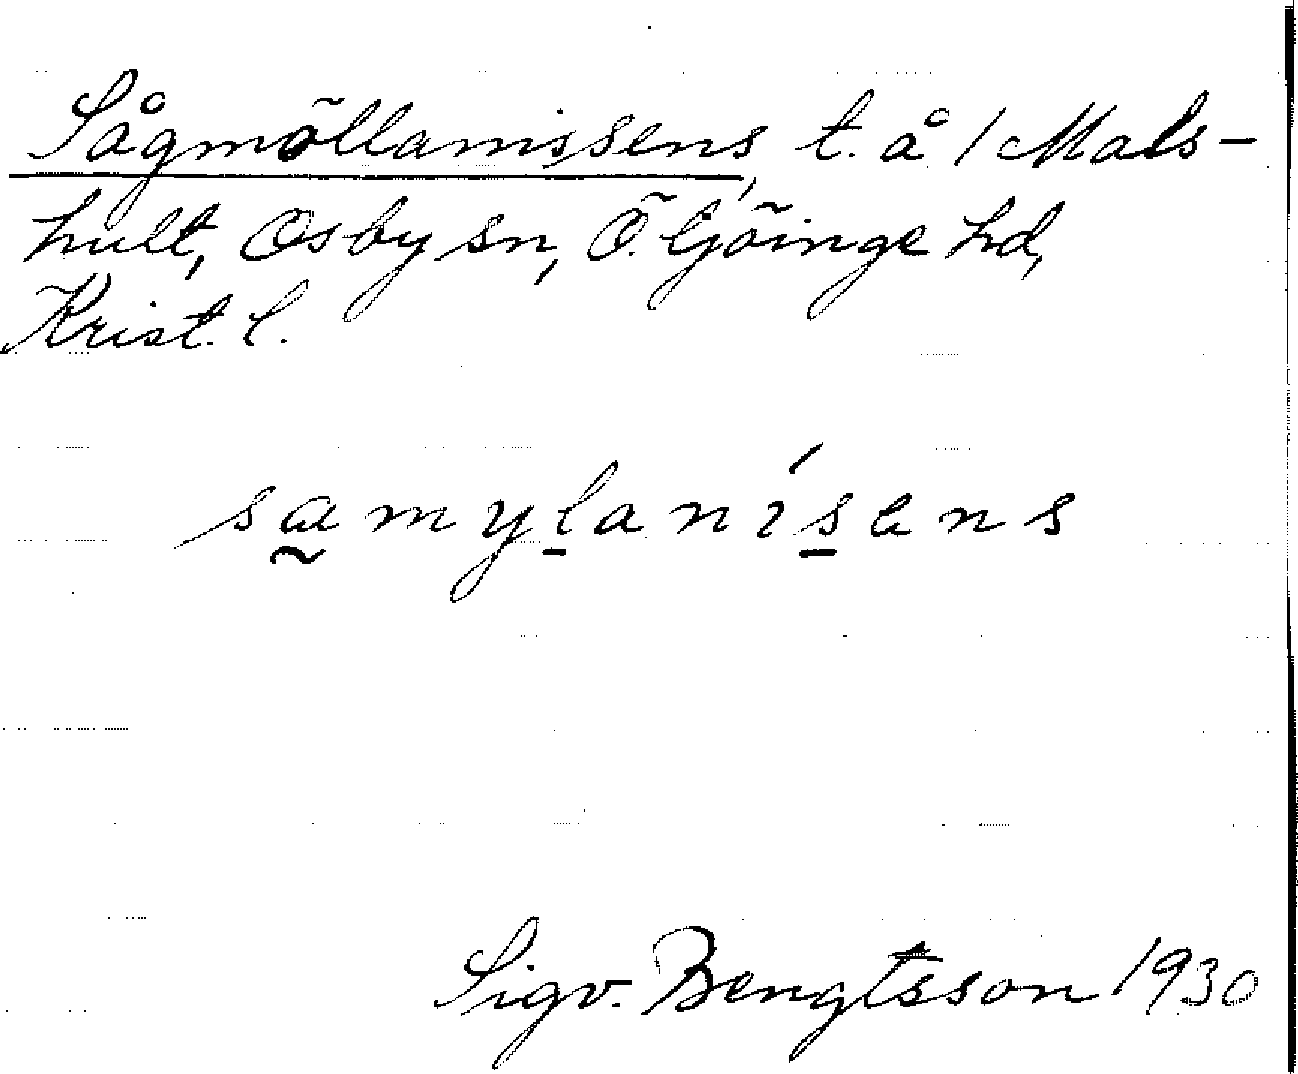 Sågmöllanissens, t. å / Mals-
hult, Osby sn, Ö. Göinge hd,
Krist. l.
samylanísens
Sigv. Bengtsson 1930